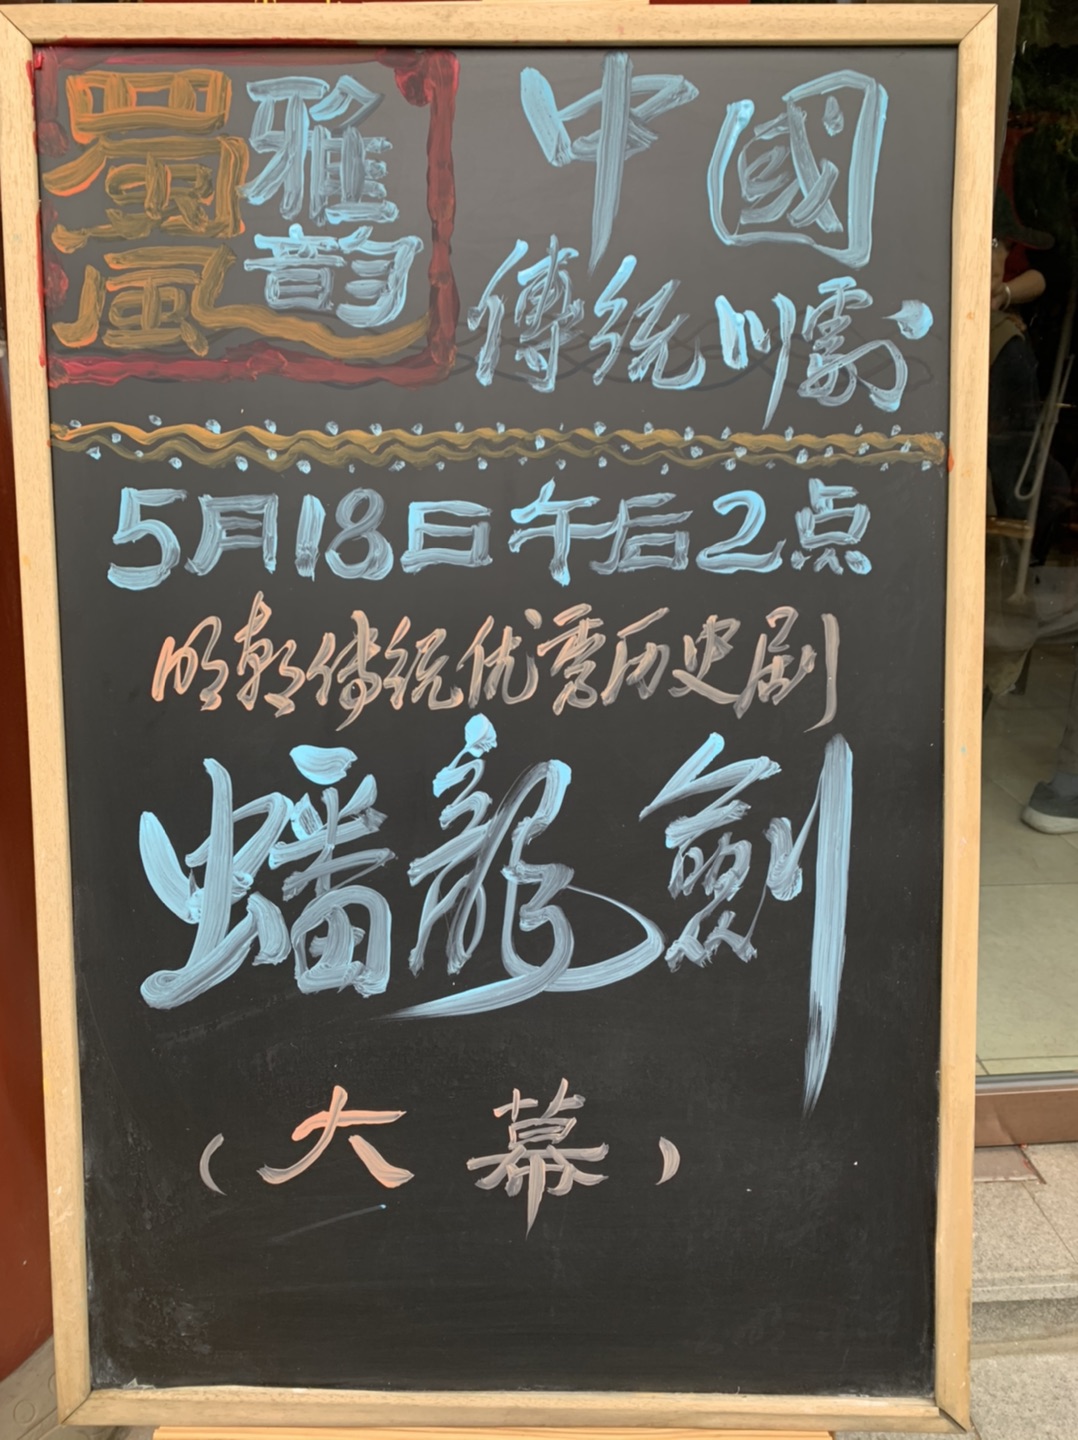 蜀風
雅韵
中國
傳統川劇
5月18日午后2点
明朝传统优秀历史剧
蟠龍劍
（大幕）